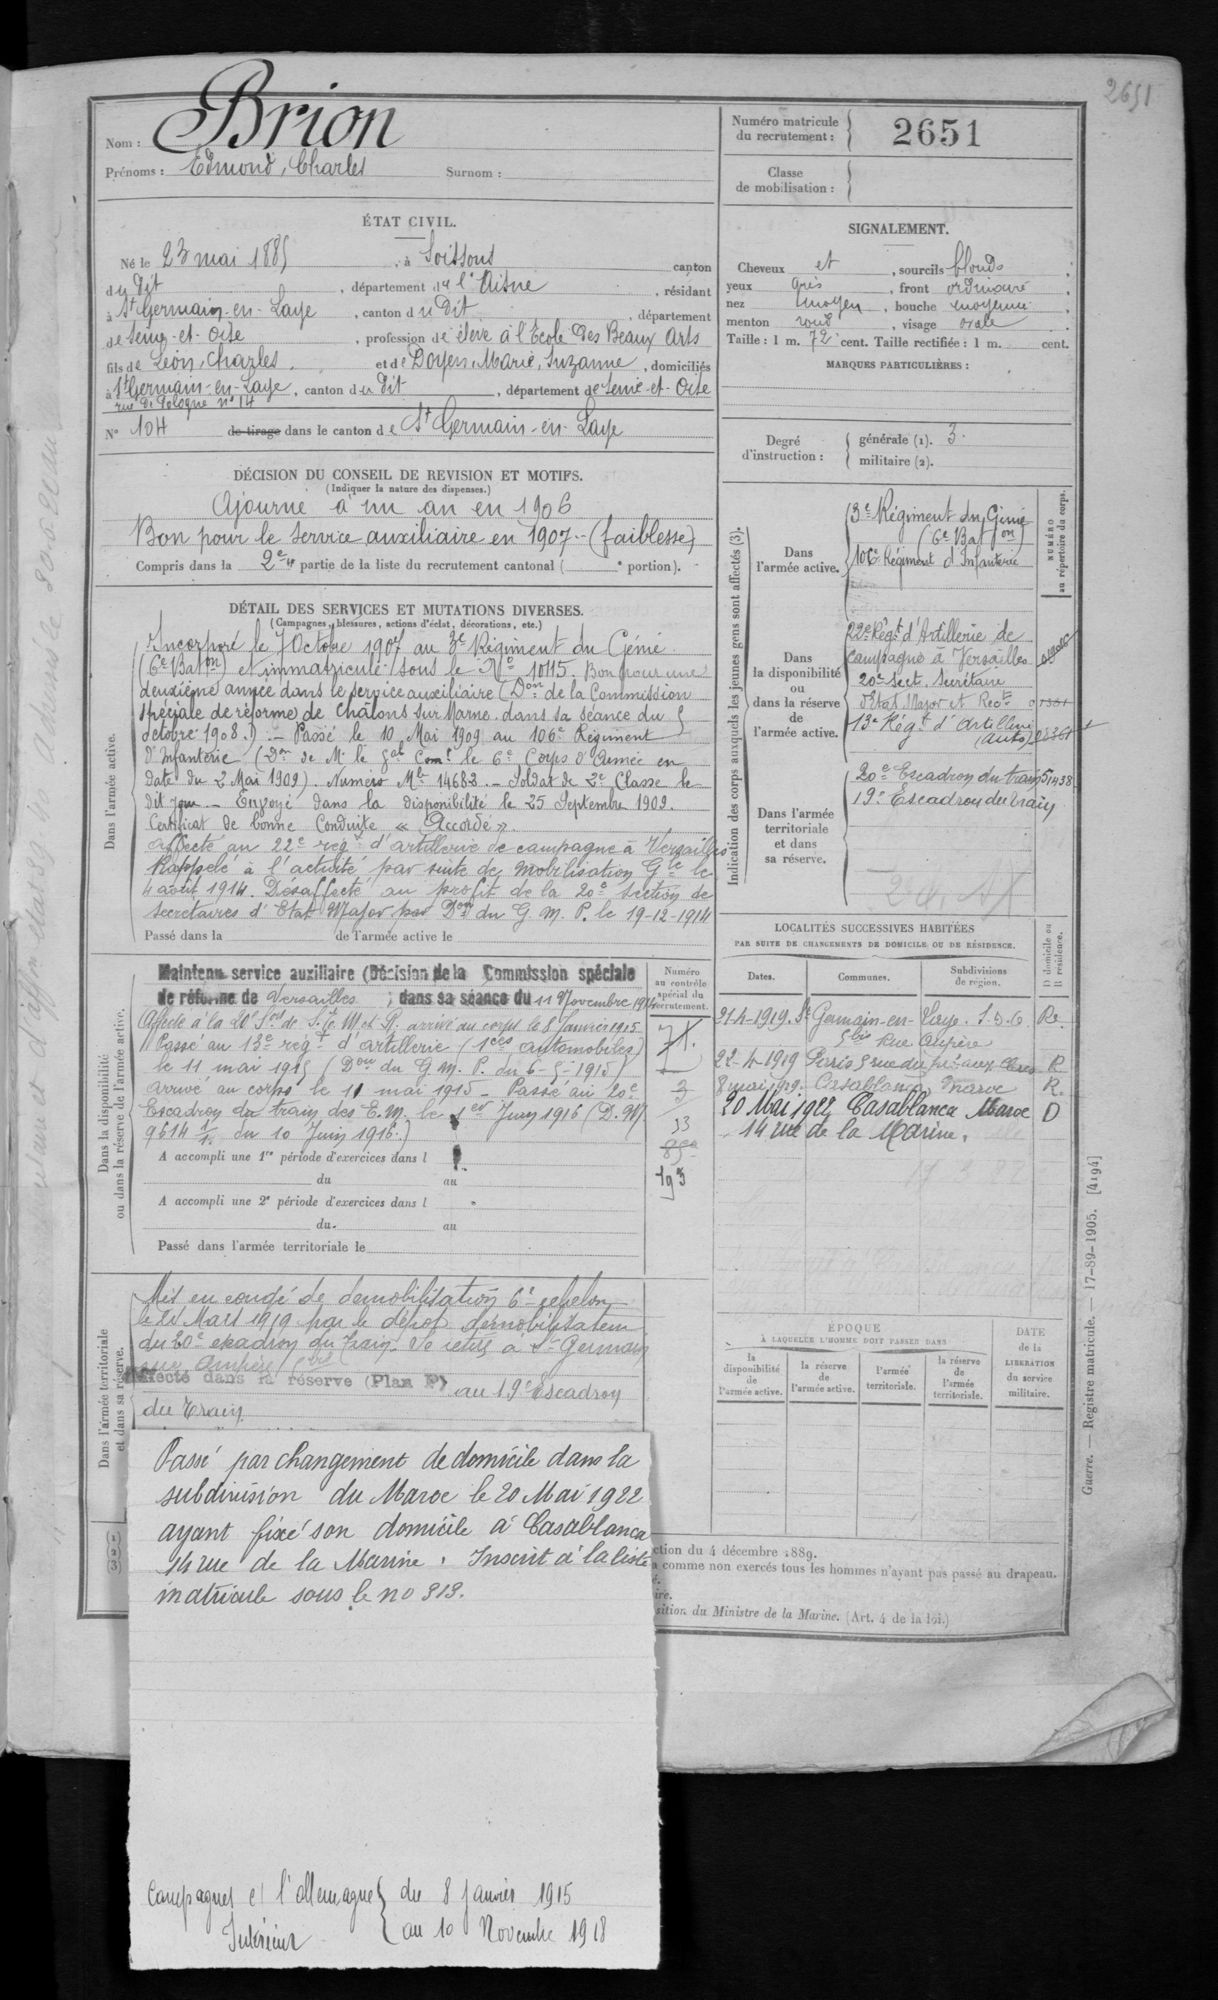 2651
Nom : Brion
Prénoms : Edmond, Charles Surnom :
Numéro matricule du recrutement : 2651
Classe de mobilisation :
ÉTAT CIVIL.
Né le 23 mai 1885, à Soissons canton
du dit, département de l'Aisne, résidant
à St Germain-en-Laye, canton du dit, département
de Seine-et-Oise, profession de élève à l'Ecole des Beaux Arts
fils de Léon, Charles et de Doyen, Marie, Suzanne, domiciliés
à St Germain-en-Laye, canton du dit, département de Seine-et-Oise
rue de Pologne n° 14
N° 104 de tirage dans le canton de St Germain-en-Laye
SIGNALEMENT.
Cheveux et, sourcils blonds;
yeux gris, front ordinaire;
nez moyen, bouche moyenne;
menton rond, visage ovale
Taille : 1 m. 72 cent. Taille rectifiée : 1 m. cent.
MARQUES PARTICULIÈRES :
Degré d'instruction : générale (1). 3.
militaire (2).
DÉCISION DU CONSEIL DE REVISION ET MOTIFS.
(Indiquer la nature des dispenses.)
Ajourné à un an en 1906
Bon pour le service auxiliaire en 1907 - (faiblesse)
Compris dans la 2e partie de la liste du recrutement cantonal ( e portion).
DÉTAIL DES SERVICES ET MUTATIONS DIVERSES.
(Campagnes, blessures, actions d'éclat, décorations, etc.)
Dans l'armée active.
Incorporé le 7 Octobre 1907 au 3e Régiment du Génie
(6e Baton) et immatriculé sous le No 10115. Bon pour une
deuxième année dans le service auxiliaire (Don de la Commission
spéciale de réforme de Châlons sur Marne dans sa séance du 5
octobre 1908.) - Passé le 10 Mai 1909 au 106e Régiment
d'Infanterie (Don de Mr le Gal Comt le 6e Corps d'Armée en
date du 2 Mai 1909). Numéro Mle 14682. - Soldat de 2e Classe le
dit jour. - Envoyé dans la disponibilité le 25 Septembre 1909.
Certificat de bonne Conduite « Accordé ».
Affecté au 22e regt d'artillerie de campagne à Versailles
Rappelé à l'activité par suite de mobilisation Gle le
4 août 1914. Désaffecté au profit de la 20e section de
secrétaires d'Etat Major par Don du G. M. P. le 19-12-1914
Passé dans la de l'armée active le
Indication des corps auxquels les jeunes gens sont affectés (3).
NUMÉRO au répertoire du corps.
Dans l'armée active.
3e Régiment du Génie
(6e Baton)
106e Régiment d'Infanterie
Dans la disponibilité ou dans la réserve de l'armée active.
22e Régt d'Artillerie de
campagne à Versailles
20e Sect. Secrétaire
d'Etat Major et Rect
13e Régt d'Artillerie
(Auto)
Dans l'armée territoriale et dans sa réserve.
20e Escadron du train 51438
19e Escadron du train
Dans la disponibilité ou dans la réserve de l'armée active.
Maintenu service auxiliaire (Décision de la Commission spéciale
de réforme de Versailles; dans sa séance du 11 Novembre 1914
Affecté à la 20e Son de S. E. M et R. arrivé au corps le 8 Janvier 1915
Passé au 13e régt d'artillerie (1ces automobiles)
le 11 mai 1915 (Don du G. M. P. du 6-5-1915)
arrivé au corps le 11 mai 1915 - Passé au 20e
Escadron du train des E. M. le 1er Juin 1916 (D. M.
9614 1/1. du 10 Juin 1916.)
A accompli une 1re période d'exercices dans l
du au
A accompli une 2e période d'exercices dans l
du. au
Passé dans l'armée territoriale le
Numéro au contrôle spécial du recrutement.
3
33
193
LOCALITÉS SUCCESSIVES HABITÉES
PAR SUITE DE CHANGEMENTS DE DOMICILE OU DE RÉSIDENCE.
Dates. Communes. Subdivisions de région. D domicile ou R résidence.
21-4-1919. St Germain-en-Laye. S.&O R.
5bis Rue Ampère
22-4-1919 Paris 5 rue du pré aux clercs R
8 mai 1919. Casablanca Maroc R.
20 Mai 1922 Casablanca Maroc D
14 rue de la Marine.
Dans l'armée territoriale et dans sa réserve.
Mis en congé de démobilisation 6e echelon
le 21 Mars 1919 par le dépot démobilisateur
du 20e escadron du train. Se retire a St Germain
rue Ampère 5bis
Affecté dans la réserve (Plan P) au 19e Escadron
du Train
ÉPOQUE
À LAQUELLE L'HOMME DOIT PASSER DANS
la disponibilité de l'armée active.
la réserve de l'armée active.
l'armée territoriale.
la réserve de l'armée territoriale.
DATE de la LIBÉRATION du service militaire.
Passé par changement de domicile dans la
subdivision du Maroc le 20 Mai 1922
ayant fixé son domicile à Casablanca
14 rue de la Marine. Inscrit à la liste
matricule sous le no 313.
ction du 4 décembre 1889.
comme non exercés tous les hommes n'ayant pas passé au drapeau.
sition du Ministre de la Marine. (Art. 4 de la loi.)
Campagnes c/ l'Allemagne du 8 Janvier 1915
Intérieur au 10 Novembre 1918
Guerre. — Registre matricule. — 17-89-1905. [4194]